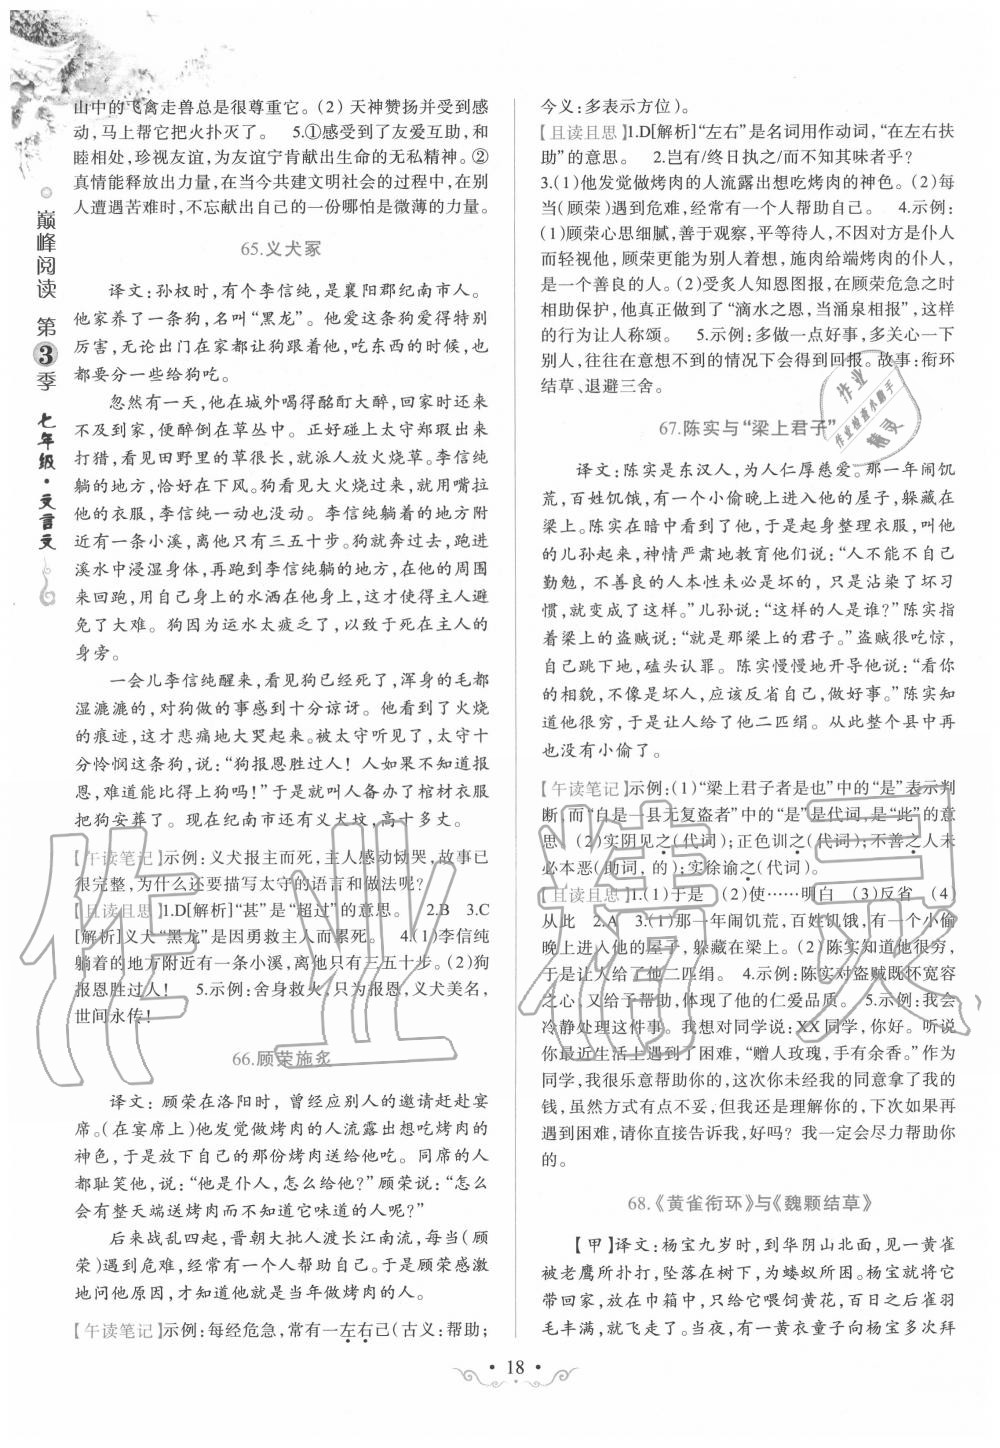 巅峰阅读 第3季 七年级·文言文
山中的飞禽走兽总是很尊重它。(2) 天神赞扬并受到感
动,马上帮它把火扑灭了。 5.①感受到了友爱互助,和
睦相处,珍视友谊,为友谊宁肯献出生命的无私精神。②
真情能释放出力量,在当今共建文明社会的过程中,在别
人遭遇苦难时,不忘献出自己的一份哪怕是微薄的力量。
65.义犬冢
译文:孙权时,有个李信纯,是襄阳郡纪南市人。
他家养了一条狗,名叫“黑龙”。他爱这条狗爱得特别
厉害,无论出门在家都让狗跟着他,吃东西的时候,也
都要分一些给狗吃。
忽然有一天,他在城外喝得酩酊大醉,回家时还
没来得及到家,便醉倒在草丛中。正好碰上太守郑瑕出来
打猎,看见田野里的草很长,就派人放火烧草。李信纯
躺的地方,恰好在下风。狗看见大火烧过来,就用嘴拉
他的衣服,李信纯一动也没动。李信纯躺着的地方附
近有一条小溪,离他只有三五十步。狗就奔过去,跑进
溪水中浸湿身体,再跑到李信纯躺的地方,在他的周围
来回跑,用自己身上的水洒在他身上,这才使得主人避
免了大难。狗因为运水太疲乏了,以致于死在主人的
身旁。
一会儿李信纯醒来,看见狗已经死了,浑身的毛都
湿漉漉的,对狗做的事感到十分惊讶。他看到了火烧
的痕迹,这才悲痛地大哭起来。被太守听见了,太守十
分怜悯这条狗,说:“狗报恩胜过人!人如果不知道报
恩,难道能比得上狗吗!”于是就叫人备办了棺材衣服
把狗安葬了。现在纪南市还有义犬坟,高十多丈。
【午读笔记】示例:义犬报主而死,主人感动恸哭,故事已
很完整,为什么还要描写太守的语言和做法呢?
【且读且思】1.D[解析]“甚”是“超过”的意思。 2.B 3.C
[解析]义犬“黑龙”是因勇救主人而累死。 4.(1)李信纯
躺着的地方附近有一条小溪,离他只有三五十步。(2)狗
报恩胜过人! 5.示例:舍身救火,只为报恩,义犬美名,
世间永传!
66.顾荣施炙
译文:顾荣在洛阳时,曾经应别人的邀请赶赴宴
席。(在宴席上)他发觉做烤肉的人流露出想吃烤肉的
神色,于是放下自己的那份烤肉送给他吃。同席的人
都耻笑他,说:“他是仆人,怎么给他?”顾荣说:“怎么
会有整天端送烤肉而不知道它味道的人呢?”
后来战乱四起,晋朝大批人渡长江南流,每当(顾
荣)遇到危难,经常有一个人帮助自己。于是顾荣感激
地问他原因,才知道他就是当年做烤肉的人。
【午读笔记】示例:每经危急,常有一左右己(古义:帮助;
今义:多表示方位)。
【且读且思】1.D[解析]“左右”是名词用作动词,“在左右扶
助”的意思。 2.岂有/终日执之/而不知其味者乎?
3.(1)他发觉做烤肉的人流露出想吃烤肉的神色。(2)每
当(顾荣)遇到危难,经常有一个人帮助自己。 4.示例:
(1)顾荣心思细腻,善于观察,平等待人,不因对方是仆人
而轻视他,顾荣更能为别人着想,施肉给端烤肉的仆人,
是一个善良的人。(2)受炙人知恩图报,在顾荣危急之时
相助保护,他真正做到了“滴水之恩,当涌泉相报”,这样
的行为让人称颂。 5.示例:多做一点好事,多关心一下
别人,往往在意想不到的情况下会得到回报。故事:衔环
结草、退避三舍。
67.陈实与“梁上君子”
译文:陈实是东汉人,为人仁厚慈爱。那一年闹饥
荒,百姓饥饿,有一个小偷晚上进入他的屋子,躲藏在
梁上。陈实在暗中看到了他,于是起身整理衣服,叫他
的儿孙起来,神情严肃地教育他们说:“人不能不自己
勤勉,不良善的人本性未必是坏的,只是沾染了坏习
惯,就变成了这样。”儿孙说:“这样的人是谁?”陈实
指着梁上的盗贼说:“就是那梁上的君子。”盗贼很吃惊,
自己跳下地,磕头认罪。陈实慢慢地开导他说:“看你
的相貌,不像是坏人,应该反省自己,做好事。”陈实知
道他很穷,于是让人给了他二匹绢。从此整个县中再
也没有小偷了。
【午读笔记】示例:(1)“梁上君子者是也”中的“是”表示判
断,而“自是一县无复盗者”中的“是”是代词,是“此”的意
思。(2)实阴见之(代词);正色训之(代词);不善之人未
必本恶(助词,的);实徐谕之(代词)。
【且读且思】1.(1)于是 (2)使……明白 (3)反省 (4)
从此 2.A 3.(1)那一年闹饥荒,百姓饥饿,有一个小偷
晚上进入他的屋子,躲藏在梁上。(2)陈实知道他很穷,
于是让人给了他二匹绢。 4.示例:陈实对盗贼既怀宽容
之心,又给予帮助,体现了他的仁爱品质。 5.示例:我会
冷静处理这件事。我想对同学说:XX同学,你好。听说
你最近生活上遇到了困难,“赠人玫瑰,手有余香。”作为
同学,我很乐意帮助你的,这次你未经我的同意拿了我的
钱,虽然方式有点不妥,但我还是理解你的,下次如果再
遇到困难,请你直接告诉我,好吗?我一定会尽力帮助你
的。
68.《黄雀衔环》与《魏颗结草》
【甲】译文:杨宝九岁时,到华阴山北面,见一黄雀
被老鹰所扑打,坠落在树下,为蝼蚁所困。杨宝就将它
带回家,放在巾箱中,只给它喂饲黄花,百日之后雀羽
毛丰满,就飞走了。当夜,有一黄衣童子向杨宝多次拜
·18·
作业
作业检查小助手
精灵
作业精灵